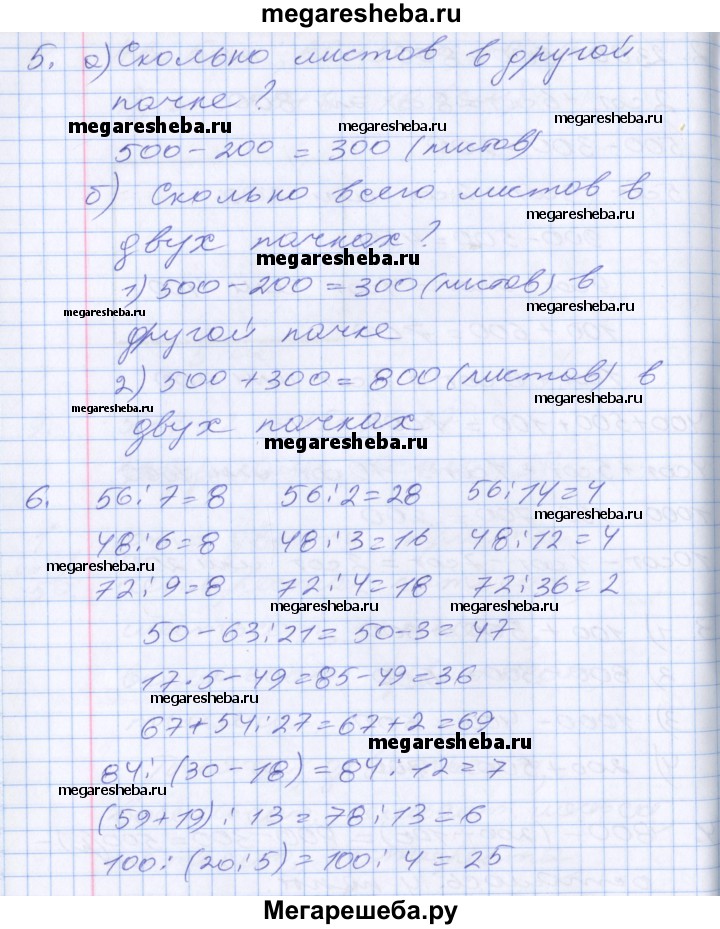 megaresheba.ru
5. а) Сколько листов в другой
пачке?
megaresheba.ru
megaresheba.ru
megaresheba.ru
500 - 200 = 300 (листов)
б) Сколько всего листов в
megaresheba.ru
двух пачках?
megaresheba.ru
1) 500 - 200 = 300 (листов) в
megaresheba.ru
megaresheba.ru
другой пачке
2) 500 + 300 = 800 (листов) в
megaresheba.ru
megaresheba.ru
двух пачках
megaresheba.ru
6. 56:7=8 56:2=28 56:14=4
megaresheba.ru
48:6=8 48:3=16 48:12=4
megaresheba.ru
72:9=8 72:4=18 72:36=2
megaresheba.ru
megaresheba.ru
50-63:21=50-3=47
17·5-49=85-49=36
megaresheba.ru
67+54:27=67+2=69
megaresheba.ru
84:(30-18)=84:12=7
megaresheba.ru
(59+19):13=78:13=6
megaresheba.ru
100:(20:5)=100:4=25
Мегарешеба.ру